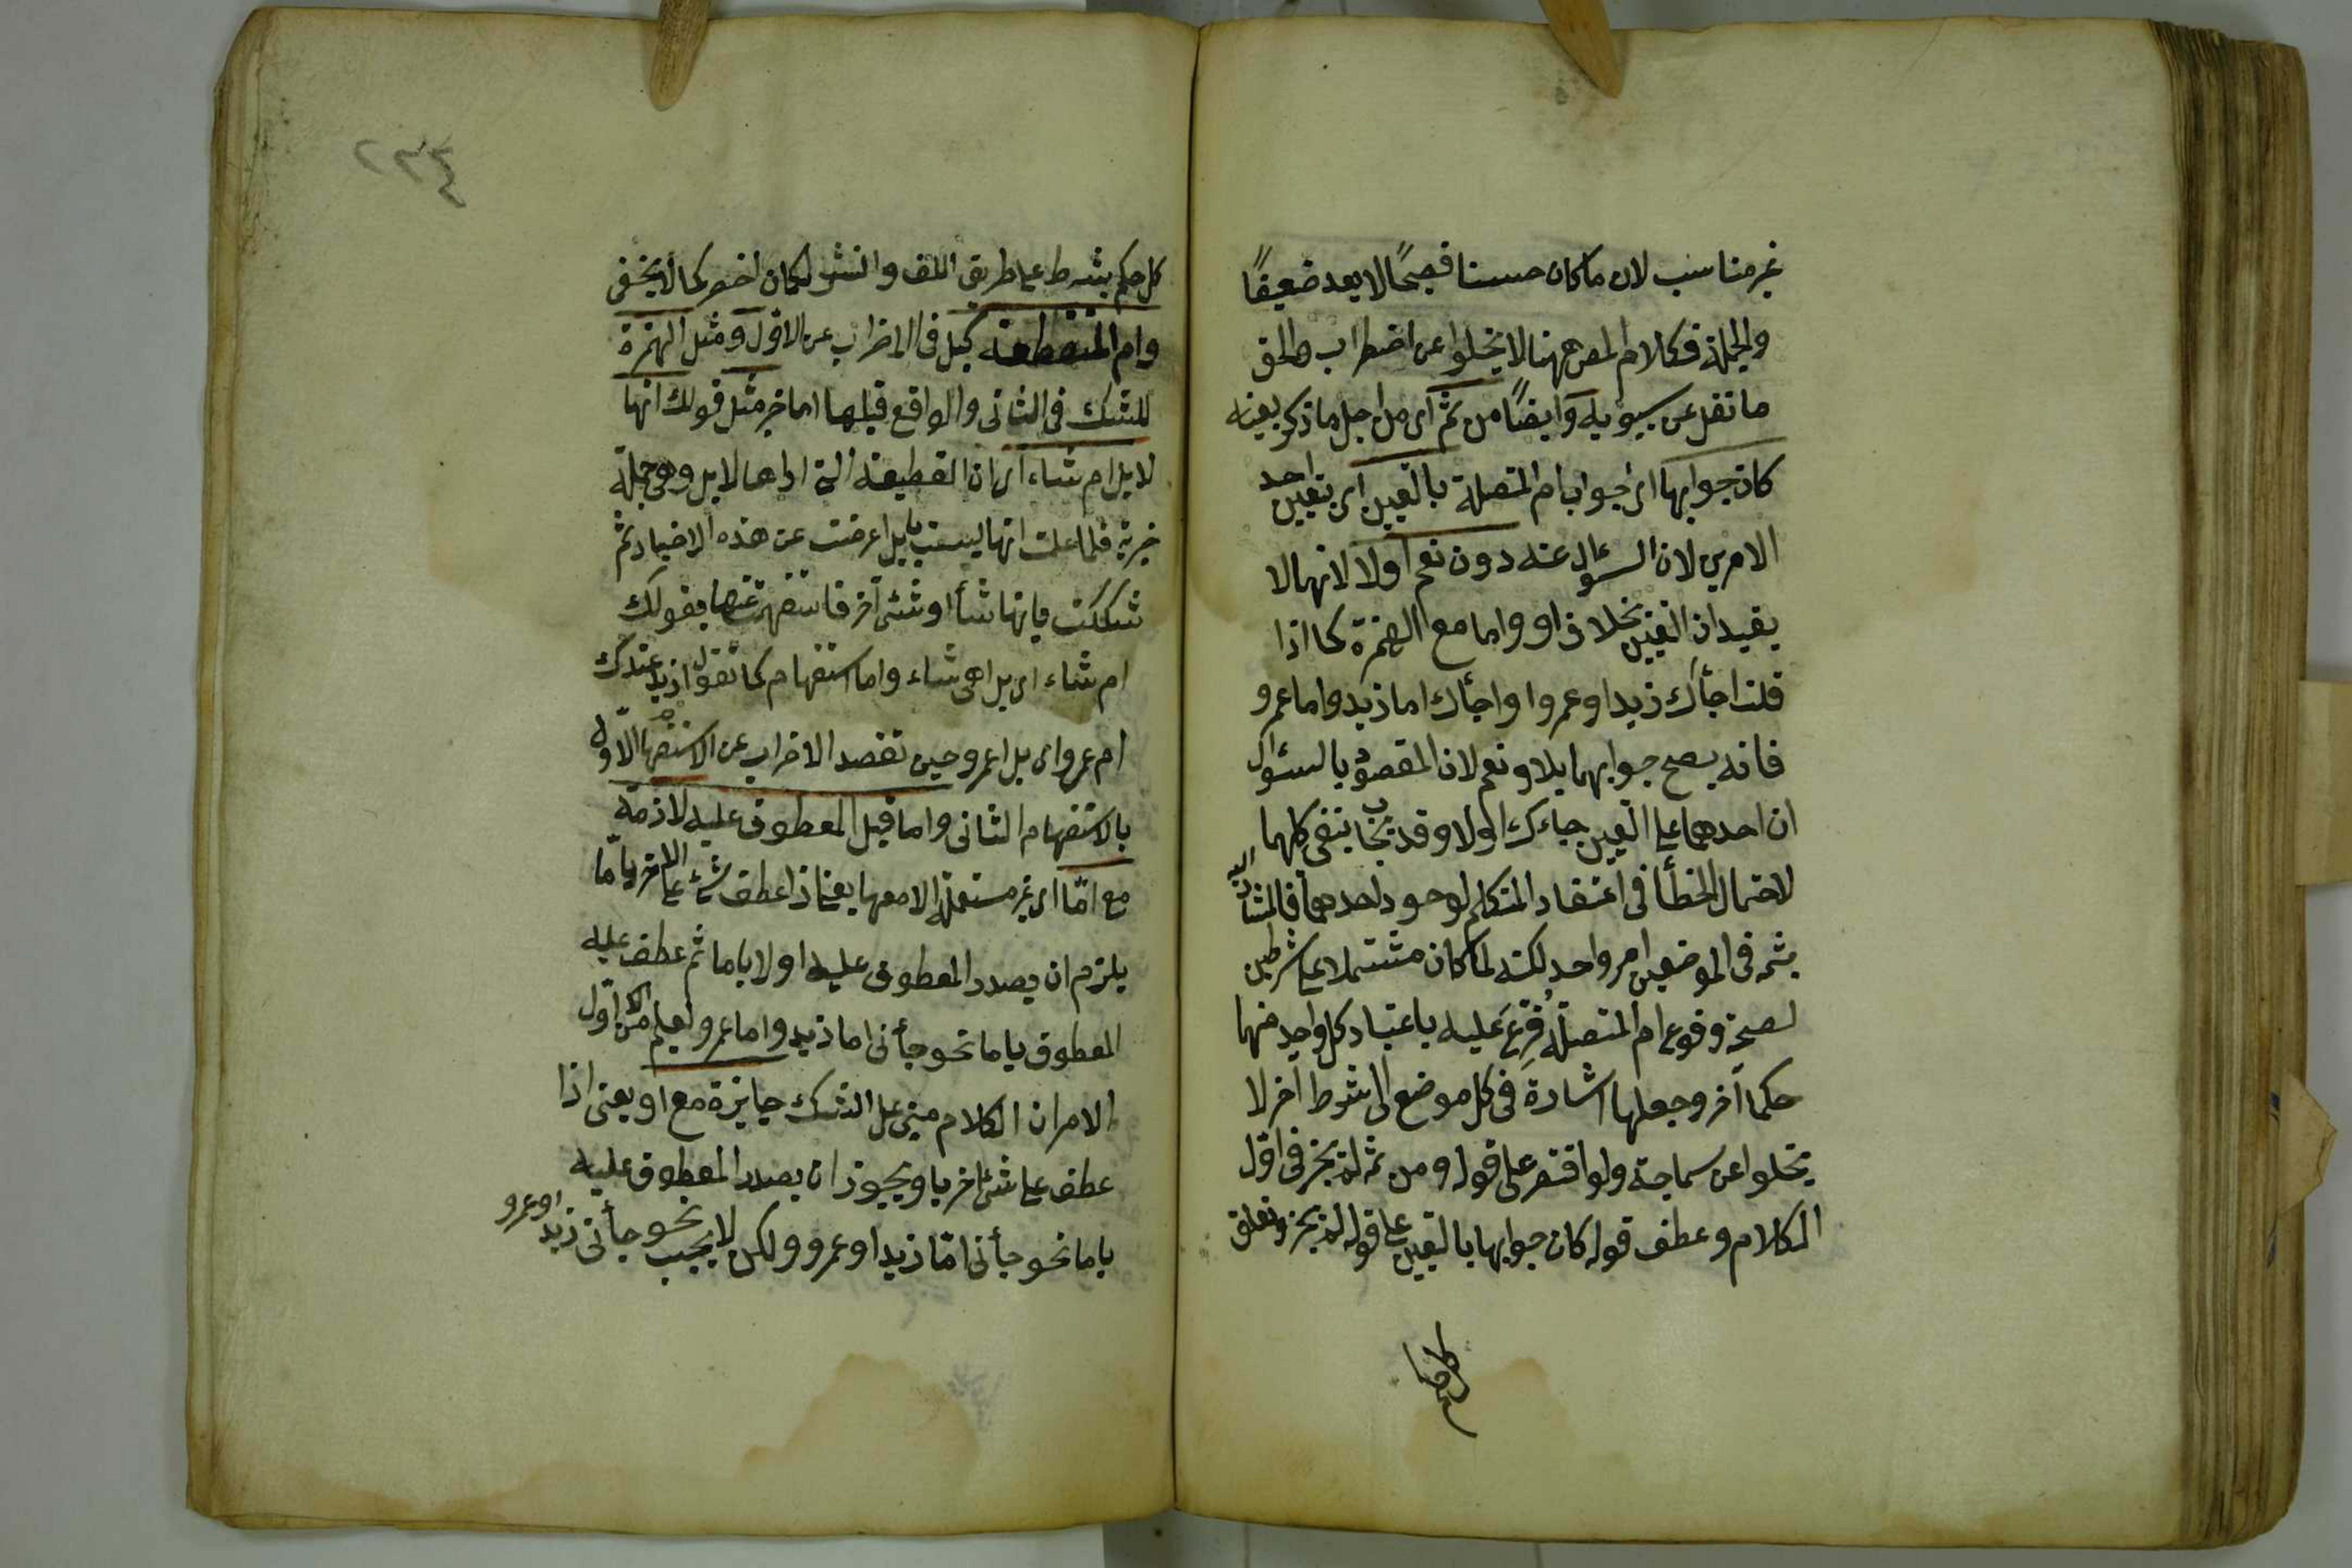 غير مناسب لان ما كان حسنا فصيحًا لا يعد ضعيفًا
والجملة فكلام المص ههنا لا يخلوا عن اضطراب والحق
ما نقل عن سيبويه وايضًا من ثم اى من اجل ما ذكر بعينه
كان جوابها اى جواب ام المتصلة بالتعيين اى بتعيين احد
الامرين لان السؤال عنه دون نعم اولا لانهما لا
يفيدان التعيين بخلاف او واما مع الهمزة كما اذا
قلت اجأك زيد او عمروا واجأك اما زيد واما عمرو
فانه يصح جوابهما بلا ونعم لان المقصود بالسؤال
ان احدهما على التعيين جاءك اولا وقد يجاب بنفى كلهما
لاحتمال الخطأ فى اعتقاد المتكلم لوجود احدهما فالمشار اليه
بثمه فى الموضعين امر واحد لكنه لما كان مشتملا على شرطين
لصحة وقوع ام المتصلة فُرِّعَ عليه باعتبار كل واحد منهما
حكما آخر وجعلها اشارة فى كل موضع الى شرط آخر لا
يخلوا عن سماجة ولو اقتصر على قوله ومن ثمه لم يجز فى اول
الكلام وعطف قوله كان جوابها بالتعيين على قوله لم يجز وتعلق
كل حكم بشرط على طريق اللف والنشر لكان اخصر كما لا يخفى
وام المنقطعة كبل فى الاضراب عن الاوّل ومثل الهمزة
للشك فى الثانى والواقع قبلها اما خبر مثل قولك انها
لابل ام شاء اى ان القطيعة التى اراها لابل وهى جملة
خبرية فلما علمت انها ليست بابل اعرضت عن هذه الاخبار ثم
شككت بانها شأ او شئ آخر فاستفهمت عنها بقولك
ام شاء اى بل اهى شاء واما استفهام كما تقول ازيد عندك
ام عمرو اى بل اعمرو حين تقصد الاضراب عن الاستفهام الاوّل
بالاستفهام الثانى واما قبل المعطوف عليه لازمة
مع امّا اى غير مستعملة الا معها يعنى اذا عطف شئ على الاخر بامّا
يلزم ان يصدر المعطوف عليه اولا باما ثم عطف عليه
المعطوف باما نحو جأنى اما زيد واما عمرو ليعلم من اوّل
الامر ان الكلام مبنى على الشك جايزة مع او يعنى اذا
عطف على شئ اخر باو يجوز ان يصدر المعطوف عليه
باما نحو جأنى امّا زيد او عمرو ولكن لا يجب نحو جأنى زيد او عمرو